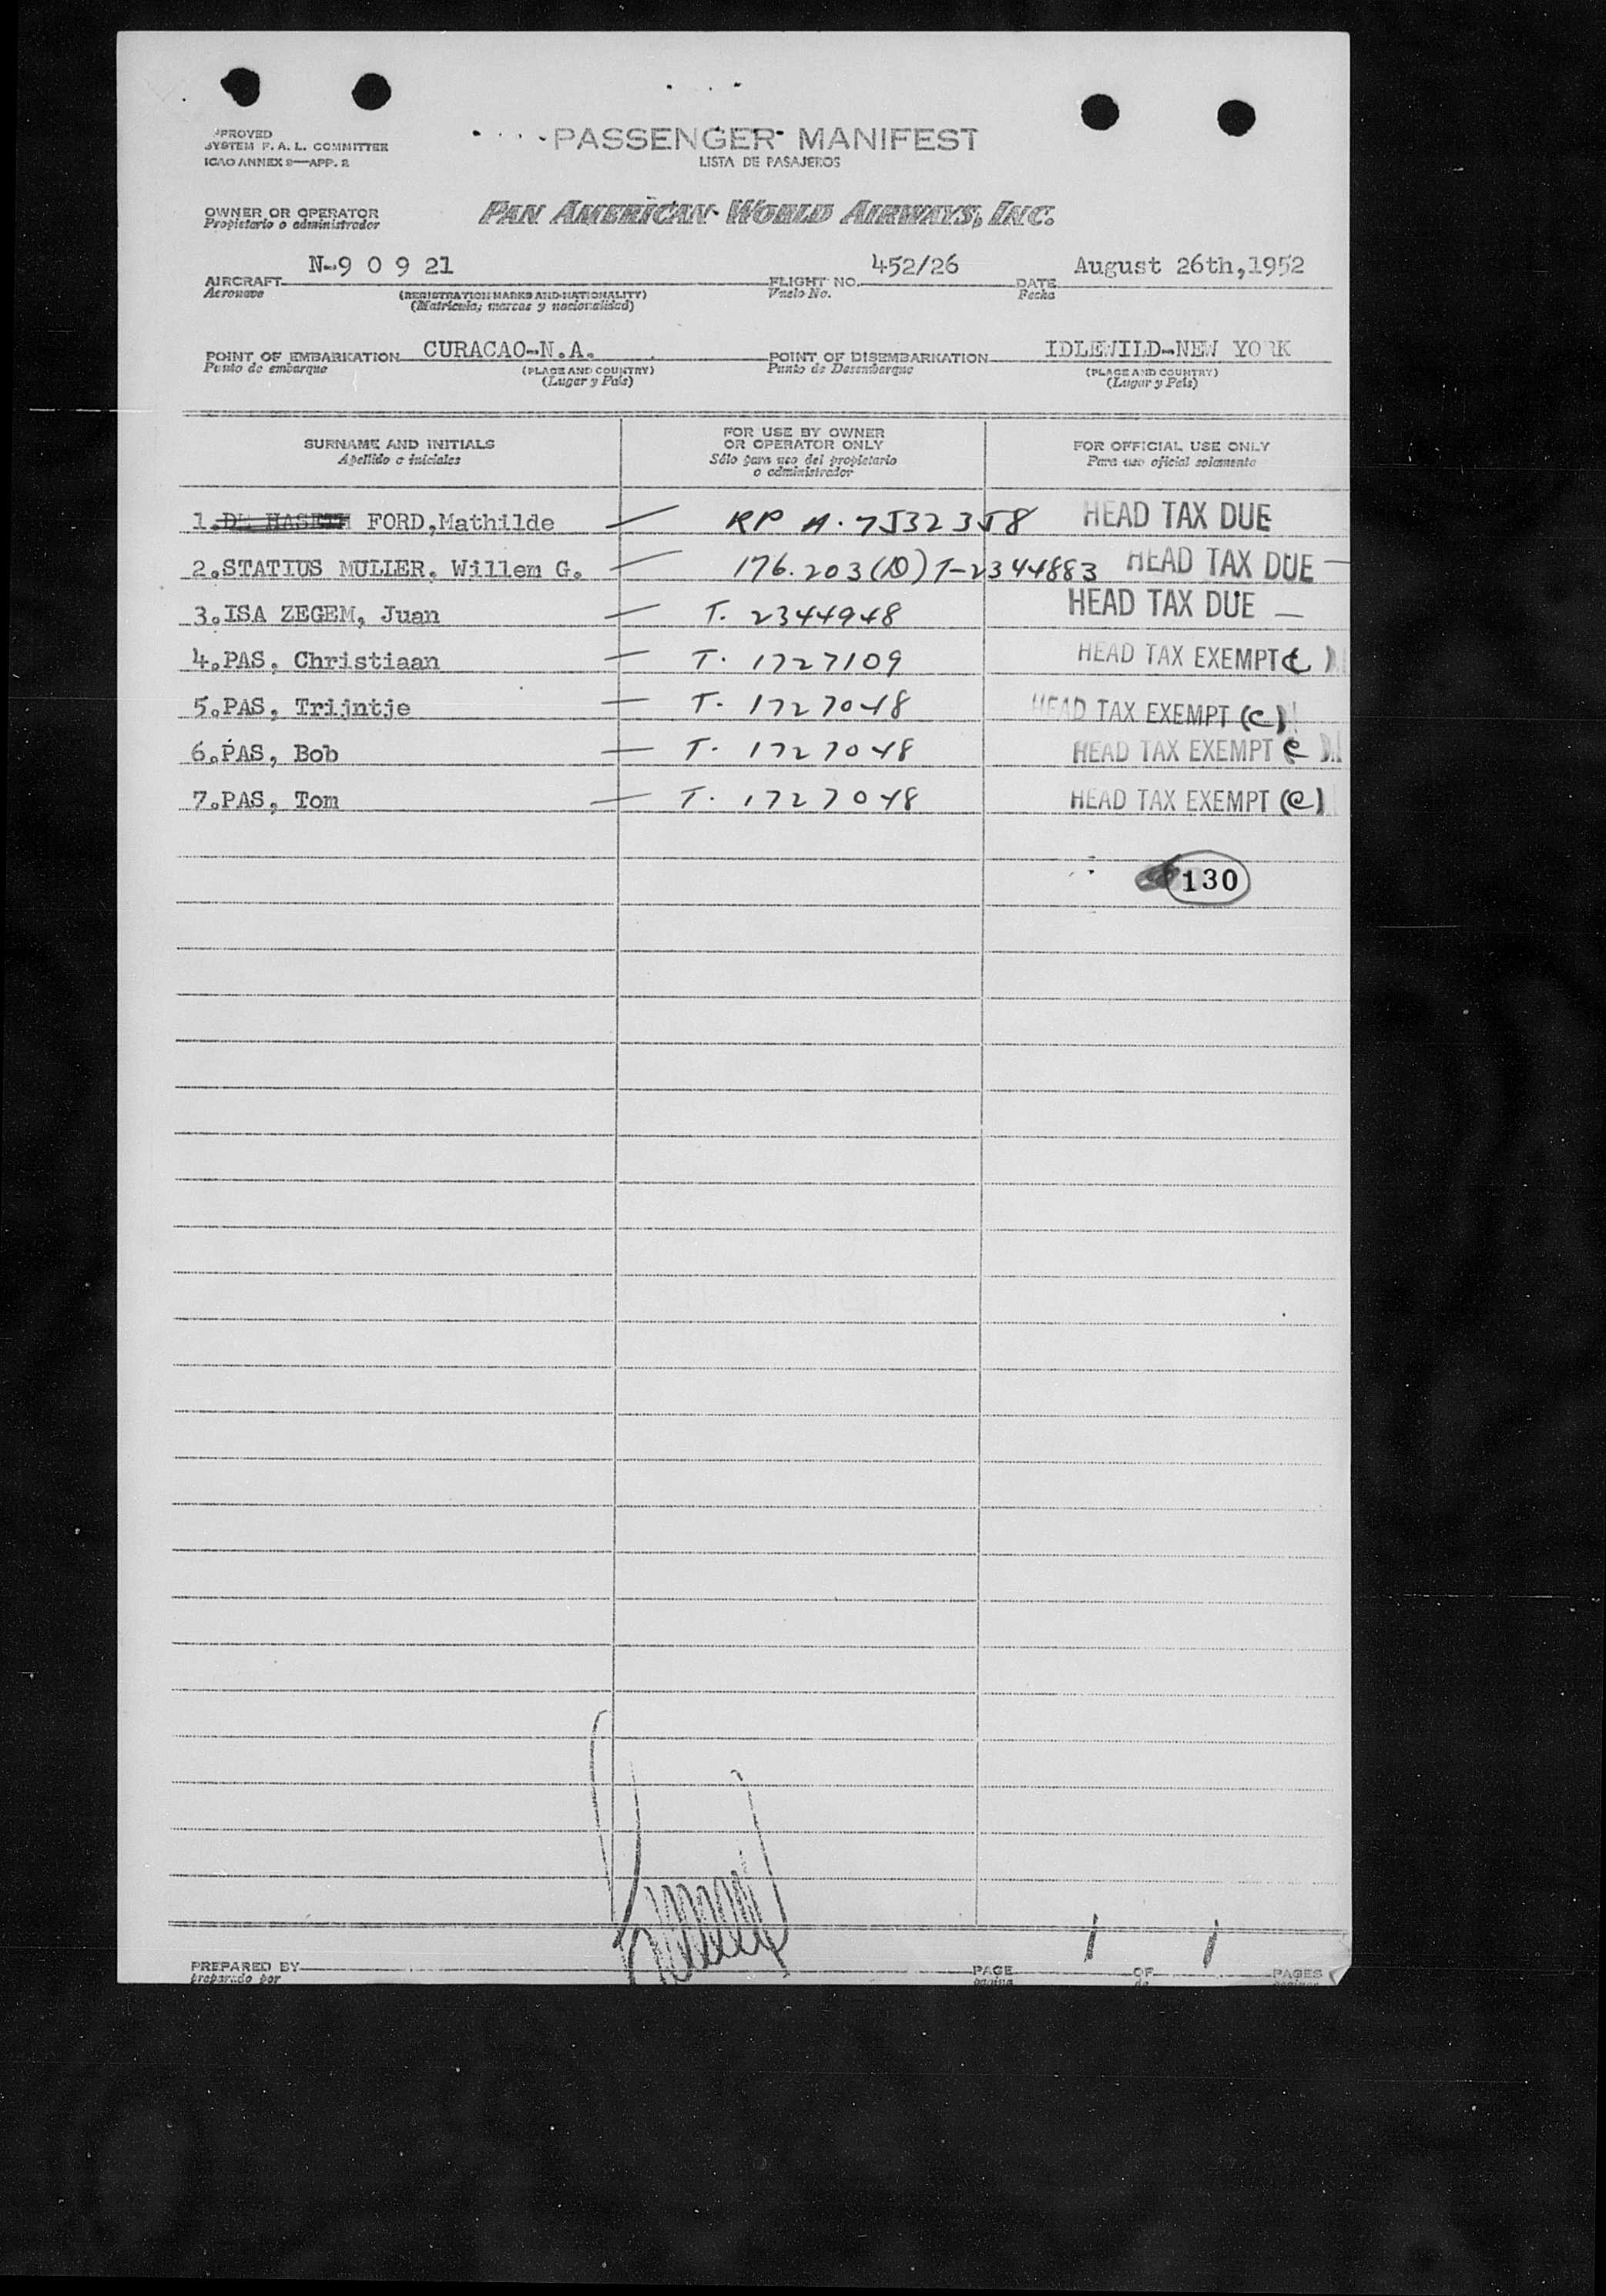 PROVED
SYSTEM F. A. L. COMMITTEE
ICAO ANNEX 9—APP. 2
PASSENGER MANIFEST
LISTA DE PASAJEROS
OWNER OR OPERATOR
Propietario o administrador
PAN AMERICAN WORLD AIRWAYS, INC.
AIRCRAFT N-9 0 9 21 FLIGHT NO. 452/26 DATE August 26th,1952
Aeronave (REGISTRATION MARKS AND NATIONALITY) Vuelo No. Fecha
(Matricula; marcas y nacionalidad)
POINT OF EMBARKATION CURACAO-N.A. POINT OF DISEMBARKATION IDLEWILD-NEW YORK
Punto de embarque (PLACE AND COUNTRY) Punto de Desembarque (PLACE AND COUNTRY)
(Lugar y País) (Lugar y País)
SURNAME AND INITIALS
Apellido o iniciales
FOR USE BY OWNER
OR OPERATOR ONLY
Sólo para uso del propietario
o administrador
FOR OFFICIAL USE ONLY
Para uso oficial solamente
1. DE HASETH FORD,Mathilde — RP A. 7532358 HEAD TAX DUE
2.STATIUS MULLER, Willem G. — 176.203(D) T-2344883 HEAD TAX DUE —
3.ISA ZEGEM, Juan — T. 2344948 HEAD TAX DUE —
4.PAS, Christiaan — T. 1727109 HEAD TAX EXEMPT (C)
5.PAS, Trijntje — T. 1727048 HEAD TAX EXEMPT (C)
6.PAS, Bob — T. 1727048 HEAD TAX EXEMPT C
7.PAS, Tom — T. 1727048 HEAD TAX EXEMPT (C)
130
PREPARED BY PAGE 1 OF 1 PAGES
preparado por pagina de paginas